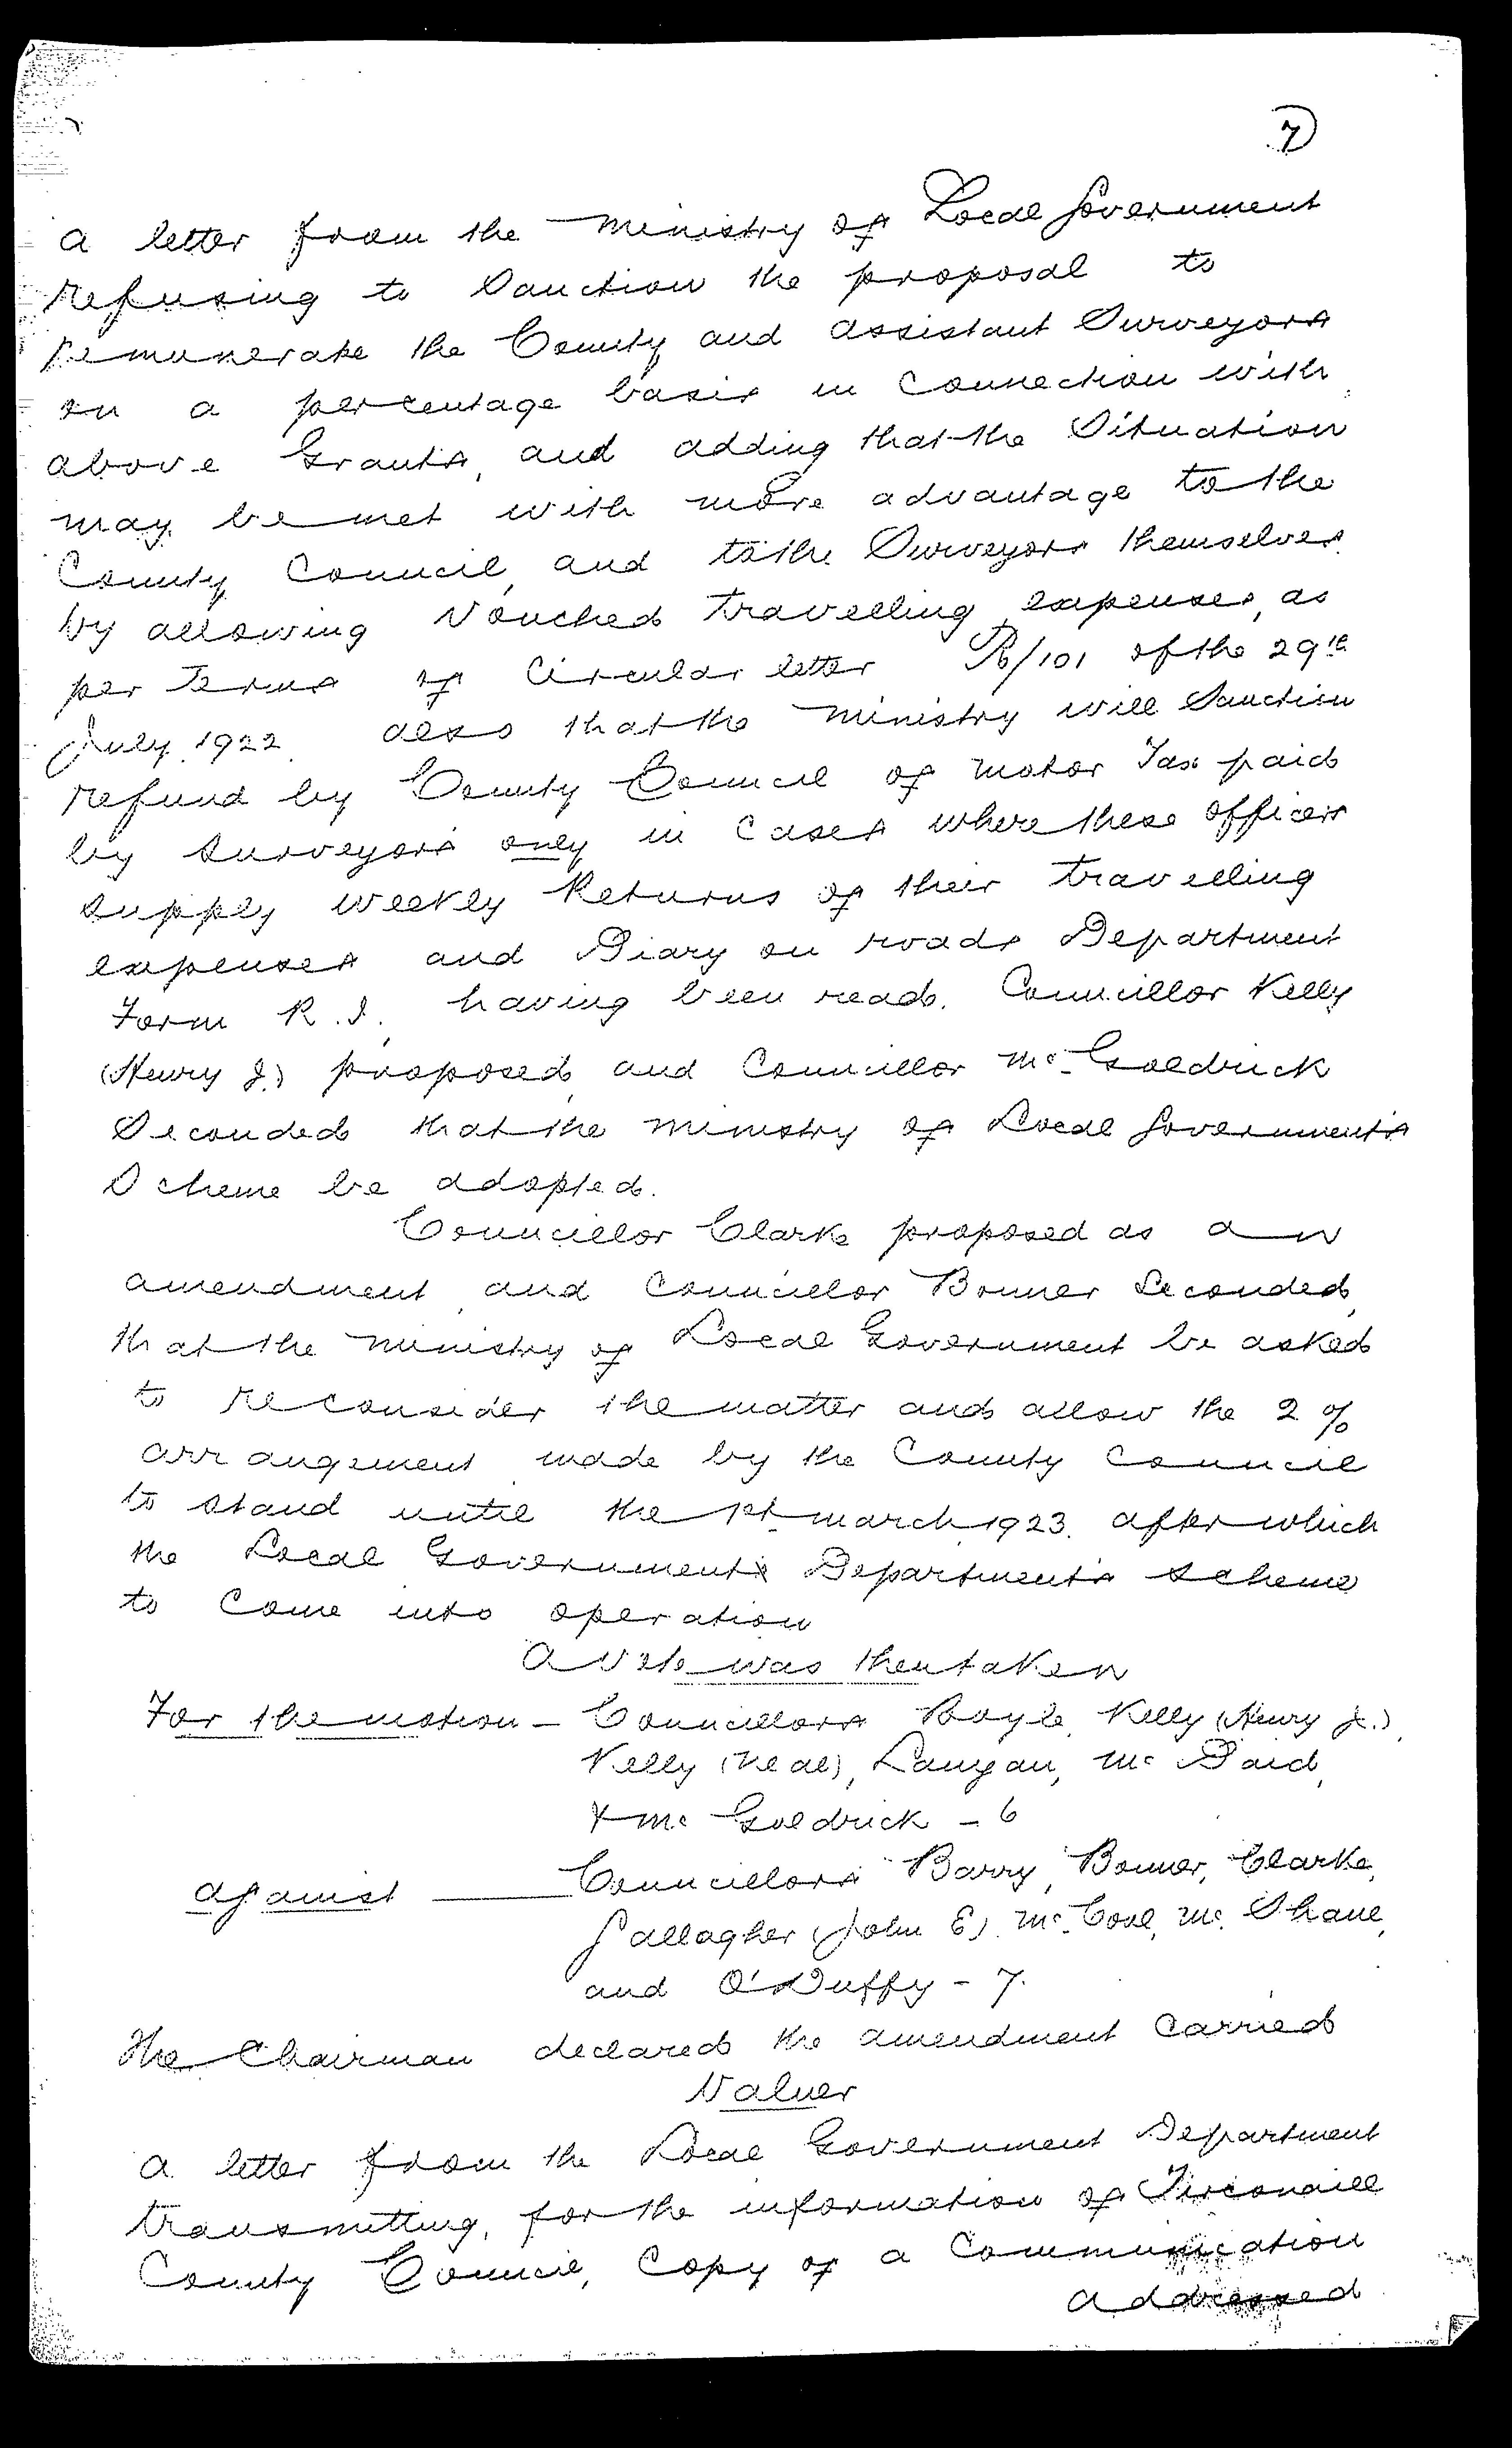 7
a letter from the Ministry of Local Government
refusing to Sanction the proposal to
remunerate the County and assistant Surveyors
on a percentage basis in connection with
above Grants, and adding that the Situation
may be met with more advantage to the
County Council, and to the Surveyors themselves
by allowing Vouched travelling expenses, as
per Terms of Circular letter R/101 of the 29th
July 1922. also that the Ministry will Sanction
refund by County Council of Motor Tax paid
by Surveyors only in cases where these officers
supply weekly Returns of their travelling
expenses and Diary on roads Department
Form R.I. having been read. Councillor Kelly
(Henry J.) proposed, and Councillor McGoldrick
Seconded that the Ministry of Local Government's
Scheme be adopted.
Councillor Clarke proposed as an
amendment, and Councillor Bonner Seconded,
that the Ministry of Local Government be asked
to reconsider the matter and allow the 2 %
arrangement made by the County Council
to stand until the 1st March 1923. after which
the Local Government Department's scheme
to come into operation
A vote was then taken
For the motion - Councillors Boyle, Kelly (Henry J.),
Kelly (Neal), Langan, Mc Daid,
& Mc Goldrick - 6
against — Councillors Barry, Bonner, Clarke,
Gallagher (John E), McCool, Mc Shane,
and O'Duffy - 7.
The Chairman declared the amendment carried
Valuer
a letter from the Local Government Department
transmitting, for the information of Tirconaill
County Council, Copy of a Communication
addressed